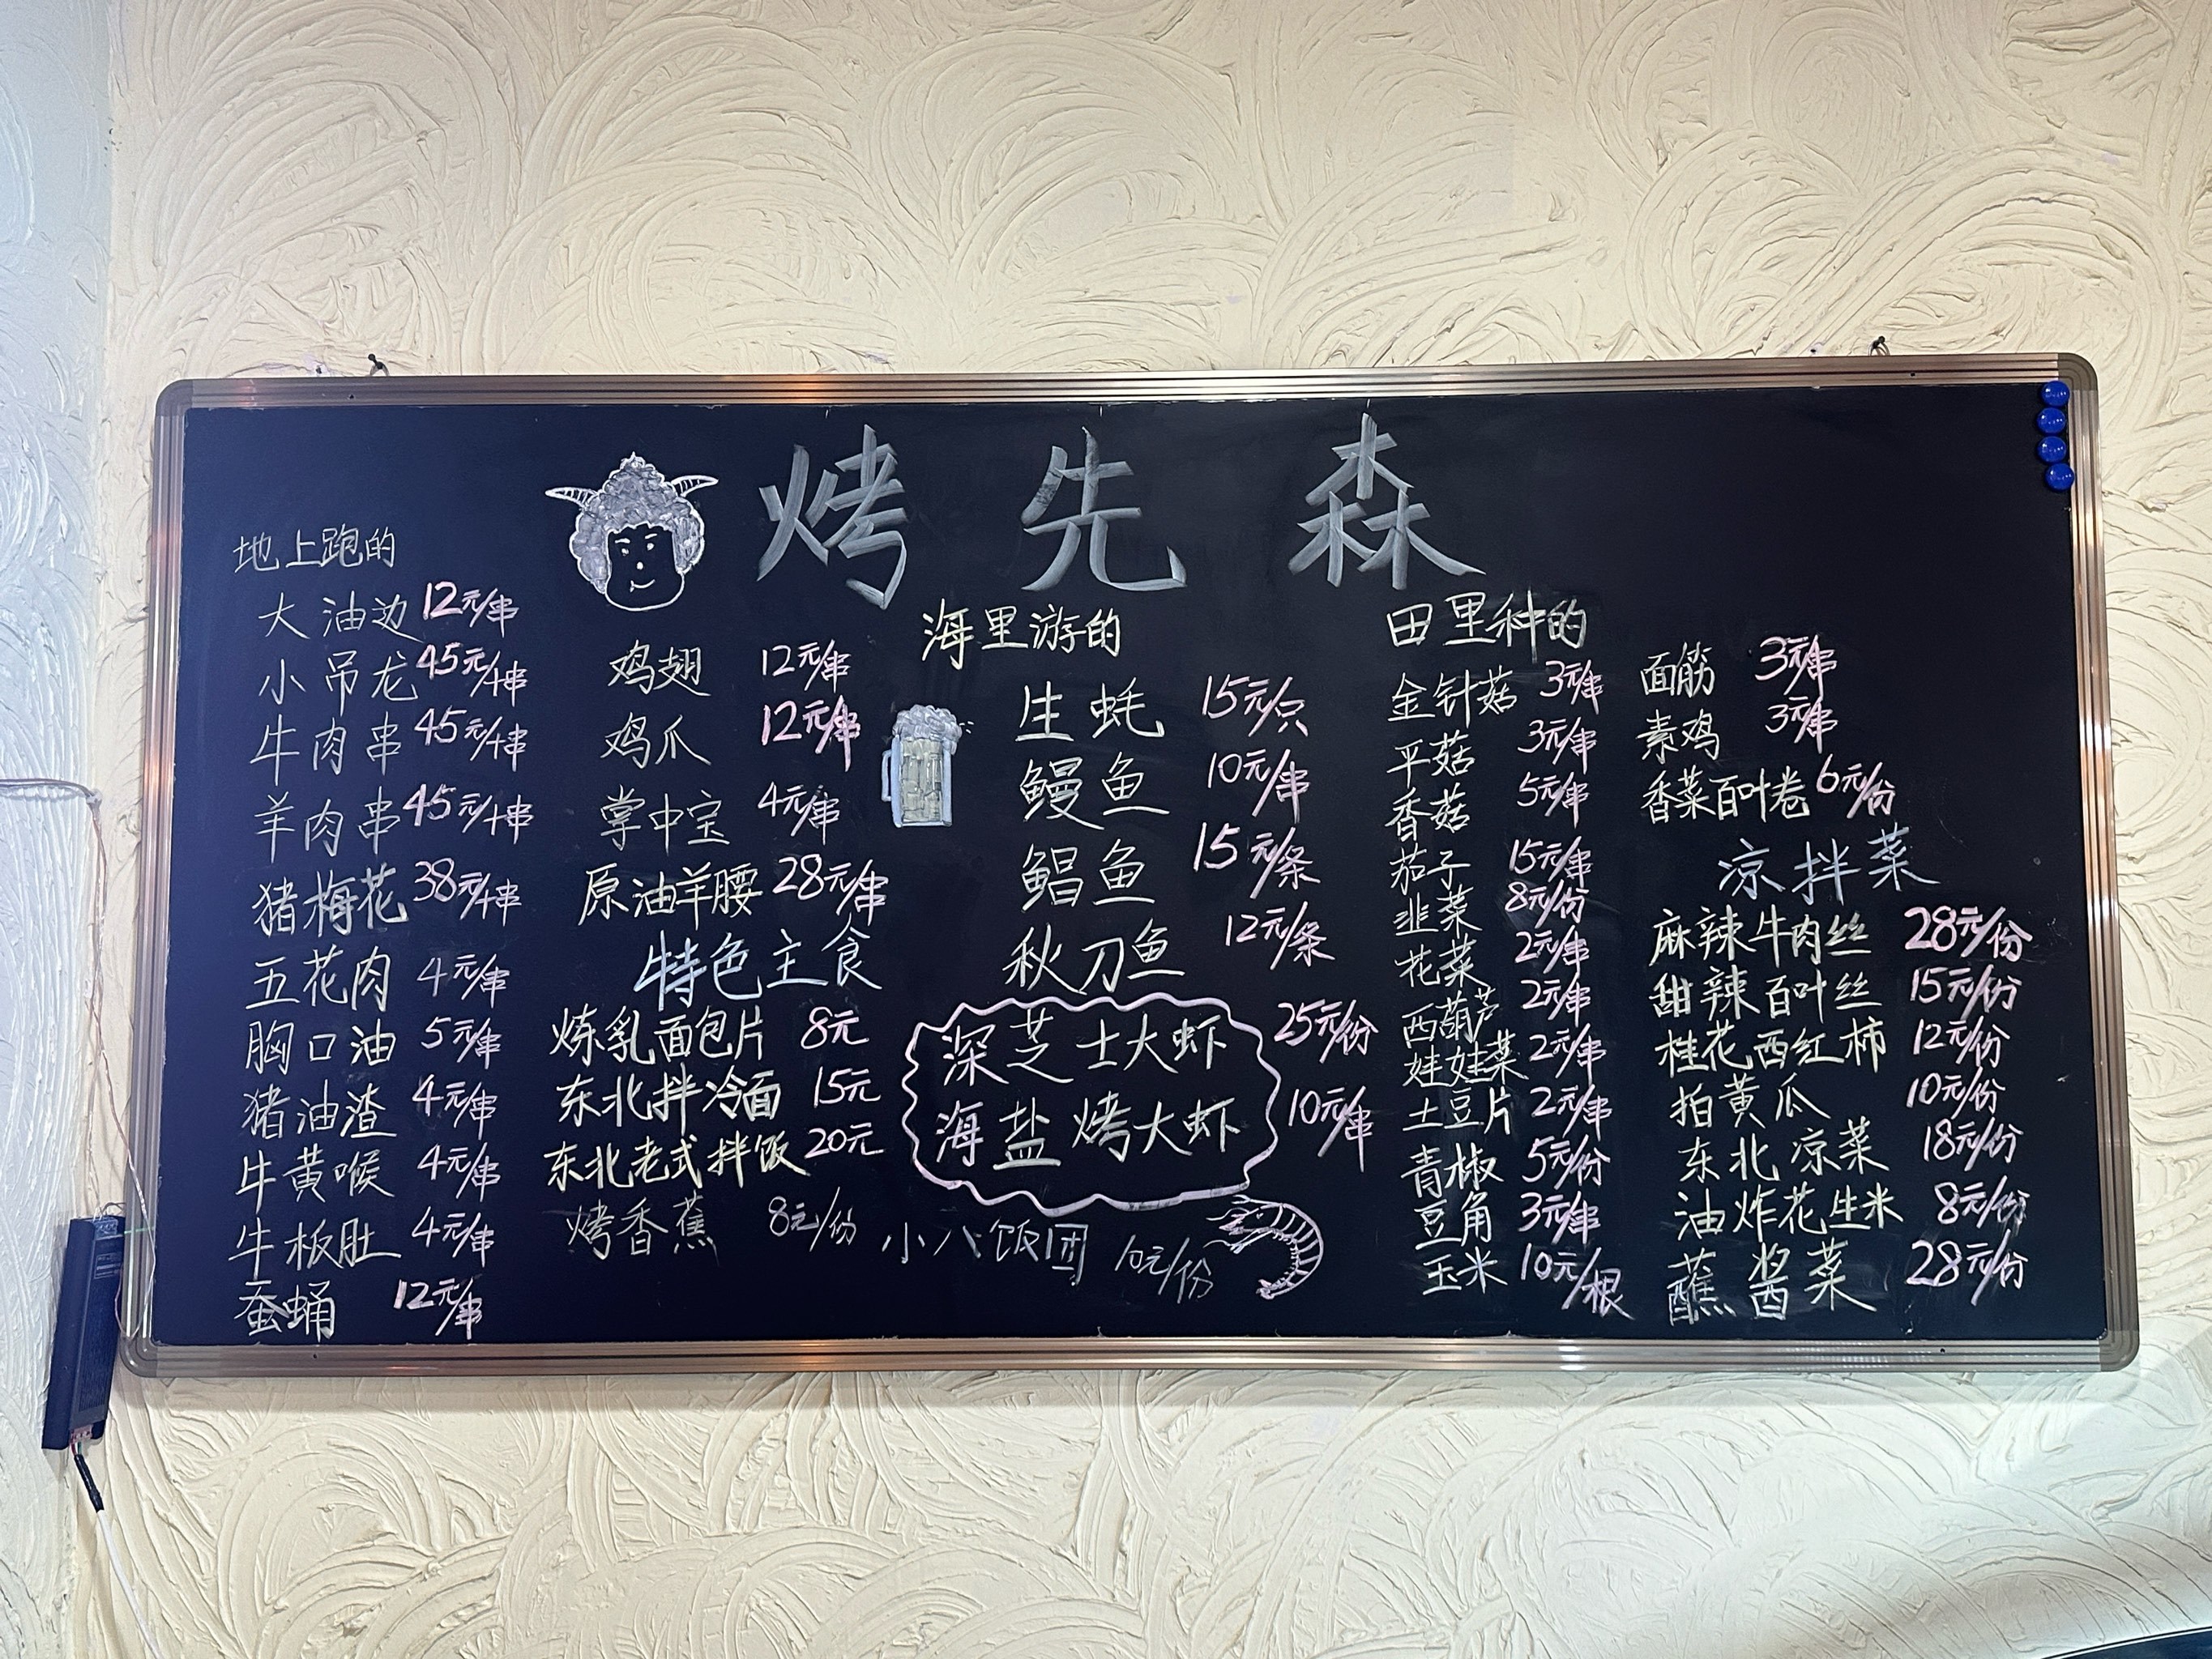 烤先森
地上跑的
大油边 12元/串
小吊龙 45元/十串
牛肉串 45元/十串
羊肉串 45元/十串
猪梅花 38元/十串
五花肉 4元/串
胸口油 5元/串
猪油渣 4元/串
牛黄喉 4元/串
牛板肚 4元/串
蚕蛹 12元/串
鸡翅 12元/串
鸡爪 12元/串
掌中宝 4元/串
原油羊腰 28元/串
特色主食
炼乳面包片 8元
东北拌冷面 15元
东北老式拌饭 20元
烤香蕉 8元/份
小八饭团 10元/份
海里游的
生蚝 15元/只
鳗鱼 10元/串
鲳鱼 15元/条
秋刀鱼 12元/条
深芝士大虾 25元/份
海盐烤大虾 10元/串
田里种的
金针菇 3元/串
平菇 3元/串
香菇 5元/串
茄子 15元/串
韭菜 8元/份
花菜 2元/串
西葫芦 2元/串
娃娃菜 2元/串
土豆片 2元/串
青椒 5元/份
豆角 3元/串
玉米 10元/根
面筋 3元/串
素鸡 3元/串
香菜百叶卷 6元/份
凉拌菜
麻辣牛肉丝 28元/份
甜辣百叶丝 15元/份
桂花西红柿 12元/份
拍黄瓜 10元/份
东北凉菜 18元/份
油炸花生米 8元/份
蘸酱菜 28元/份